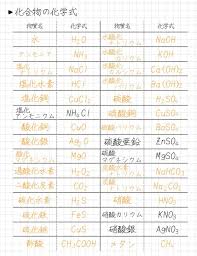 ▶化合物の化学式
物質名 化学式 物質名 化学式
水 H₂O 水酸化ナトリウム NaOH
アンモニア NH₃ 水酸化カリウム KOH
塩化ナトリウム NaCl 水酸化カルシウム Ca(OH)₂
塩化水素 HCl 水酸化バリウム Ba(OH)₂
塩化銅 CuCl₂ 硫酸 H₂SO₄
塩化アンモニウム NH₄Cl 硫酸銅 CuSO₄
酸化銅 CuO 硫酸バリウム BaSO₄
酸化銀 Ag₂O 硫酸亜鉛 ZnSO₄
酸化マグネシウム MgO 硫酸マグネシウム MgSO₄
過酸化水素 H₂O₂ 炭酸水素ナトリウム NaHCO₃
二酸化炭素 CO₂ 炭酸ナトリウム Na₂CO₃
硫化水素 H₂S 硝酸 HNO₃
硫化鉄 FeS 硝酸カリウム KNO₃
硫化銅 CuS 硝酸銀 AgNO₃
酢酸 CH₃COOH メタン CH₄